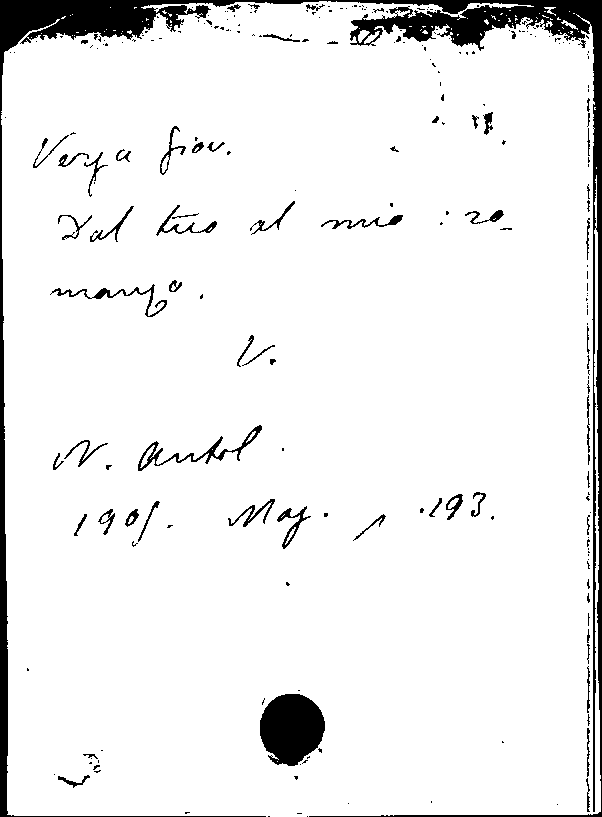 Verga Giov.
Dal tuo al mio : ro-
manzo.
V.
N. Antol.
1905. Mag. , .193.